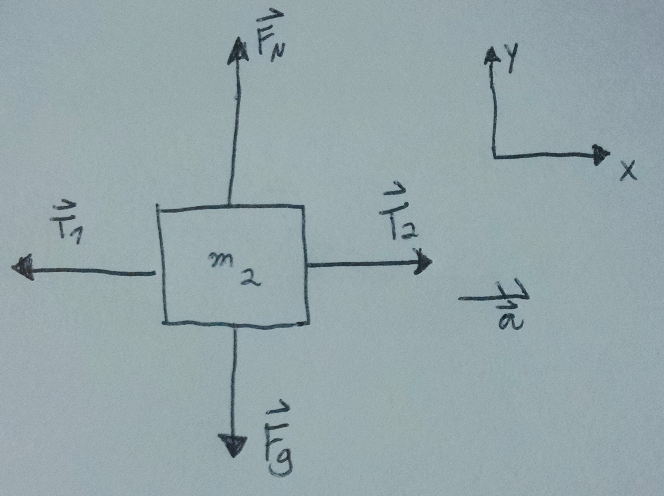 F_N
y
x
T_1
T_2
m_2
a
F_g